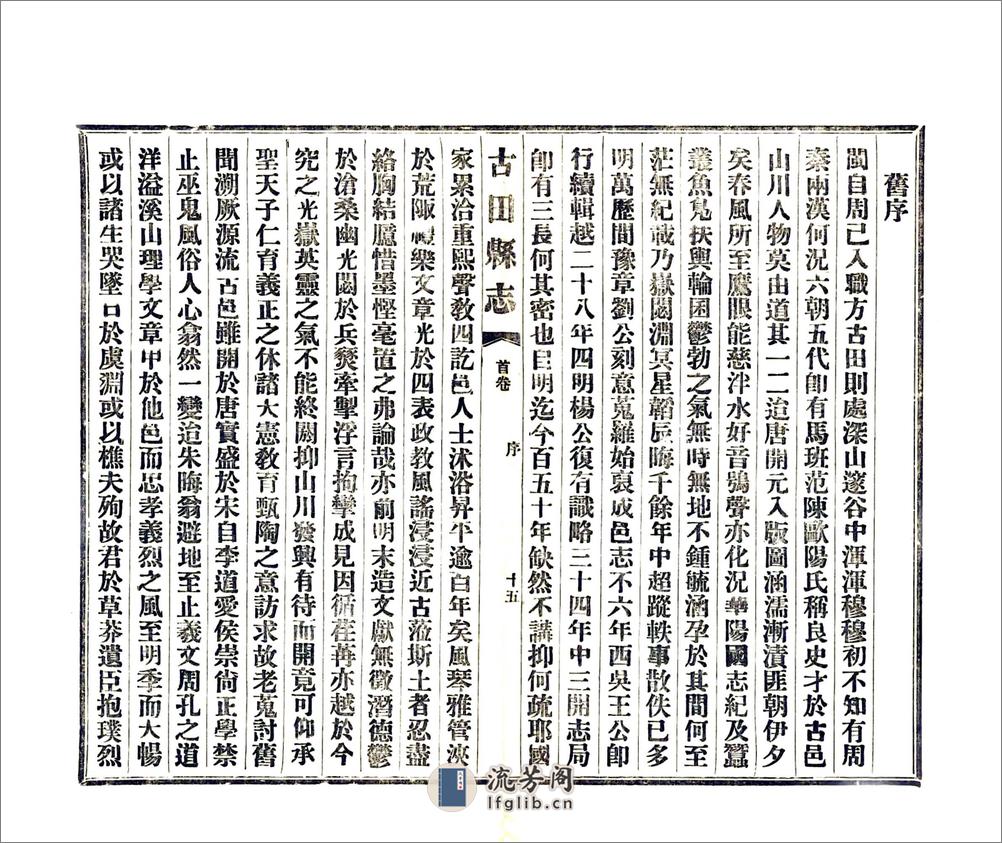 舊序
閩自周已入職方古田則處深山邃谷中渾渾穆穆初不知有周
秦兩漢何況六朝五代卽有馬班范陳歐陽氏稱良史才於古邑
山川人物莫由道其一二迨唐開元入版圖涵濡漸漬匪朝伊夕
矣春風所至鷹眼能慈泮水好音鴞聲亦化況華陽國志紀及蠶
叢魚鳧扶輿輪囷鬱勃之氣無時無地不鍾毓涵孕於其間何至
茫無紀載乃嶽閟淵冥星韜辰晦千餘年中超蹤軼事散佚已多
明萬歷間豫章劉公刻意蒐羅始裒成邑志不六年西吳王公卽
行續輯越二十八年四明楊公復有識略三十四年中三開志局
卽有三長何其密也自明迄今百五十年缺然不講抑何疏耶國
古田縣志
首卷
序
十五
家累洽重熙聲敎四訖邑人士沐浴昇平逾百年矣風琴雅管浹
於荒陬禮樂文章光於四表政敎風謠浸浸近古蒞斯土者忍盡
絡胸結臚惜墨慳毫置之弗論哉亦前明末造文獻無徵潛德鬱
於滄桑幽光閟於兵燹牽掣浮言拘攣成見因循荏苒亦越於今
究之光嶽英靈之氣不能終閟抑山川發興有待而開竟可仰承
聖天子仁育義正之休諸大憲敎育甄陶之意訪求故老蒐討舊
聞溯厥源流古邑雖開於唐實盛於宋自李道愛侯崇尙正學禁
止巫鬼風俗人心翕然一變迨朱晦翁避地至止羲文周孔之道
洋溢溪山理學文章甲於他邑而忠孝義烈之風至明季而大暢
或以諸生哭墜日於虞淵或以樵夫殉故君於草莽遺臣抱璞烈
流芳阁
lfglib.cn